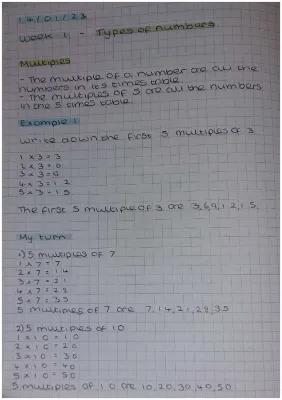 14/01/23
Week 1 - Types of numbers
Multiples
- The multiple of a number are all the
numbers in it's times table
- The multiples of 5 are all the numbers
in the 5 times table
Example 1
Write down the first 5 multiples of 3
1 x 3 = 3
2 x 3 = 6
3 x 3 = 9
4 x 3 = 12
5 x 3 = 15
The first 5 multiple of 3 are 3,6,9,12,15
My turn
1) 5 multiples of 7
1 x 7 = 7
2 x 7 = 14
3 x 7 = 21
4 x 7 = 28
5 x 7 = 35
5 multiples of 7 are 7,14,21,28,35
2) 5 multiples of 10
1 x 10 = 10
2 x 10 = 20
3 x 10 = 30
4 x 10 = 40
5 x 10 = 50
5 multiples of 10 are 10,20,30,40,50